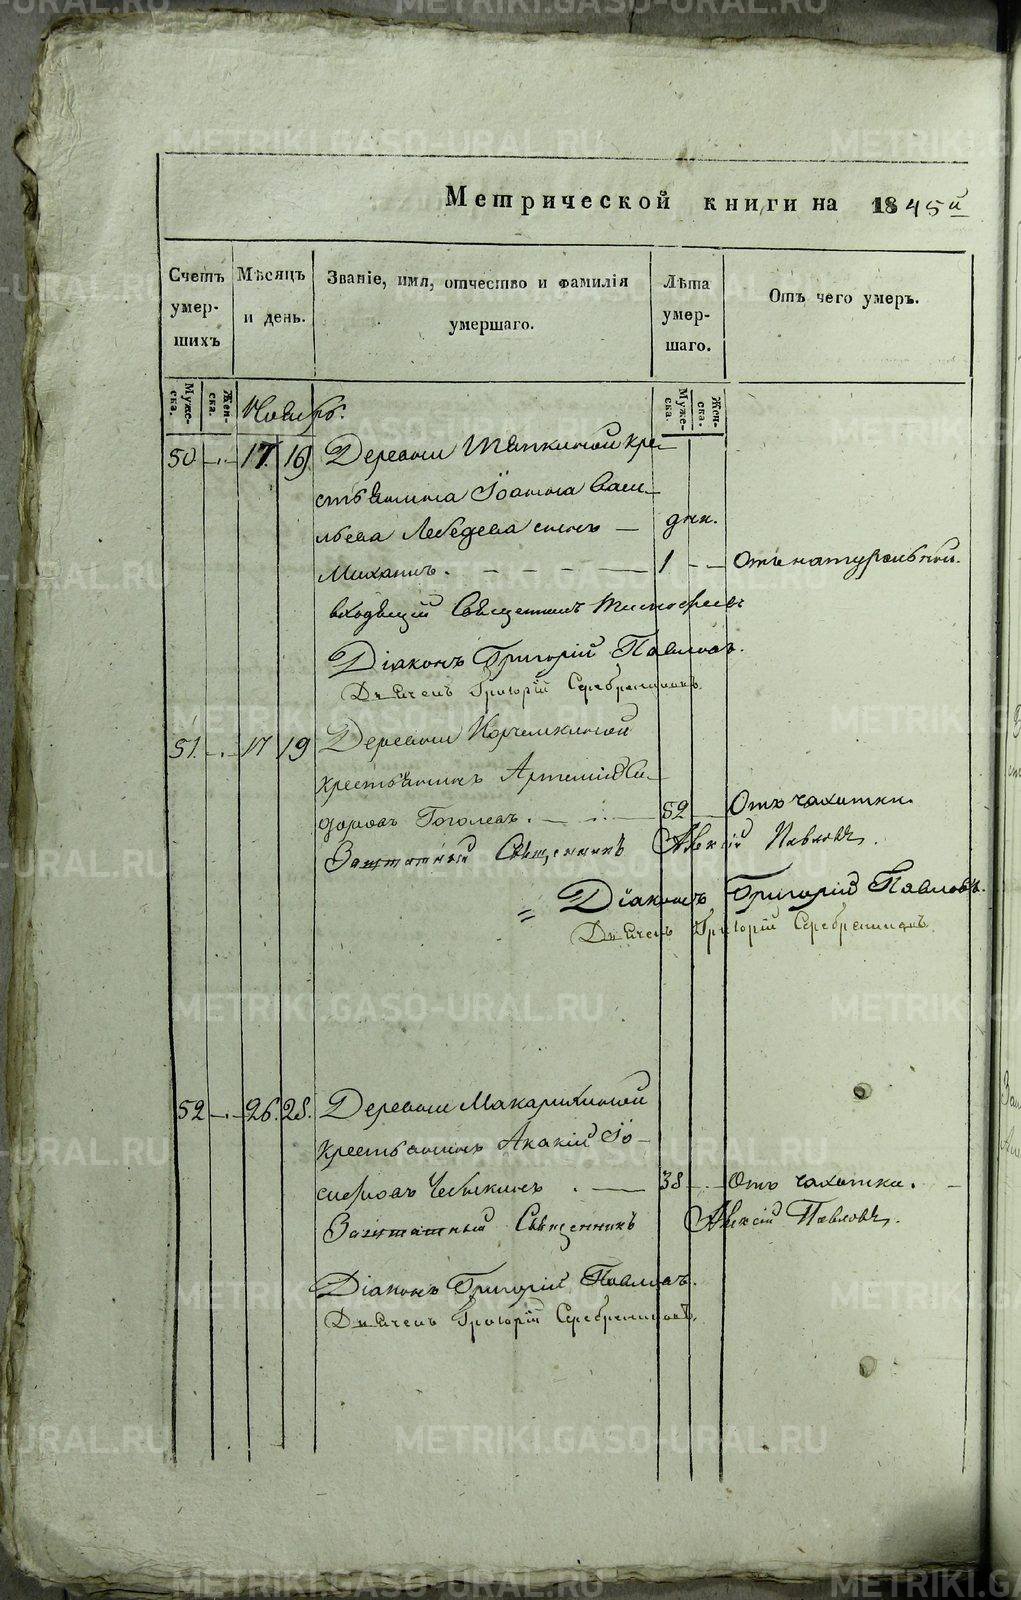 Метрической книги на 1845й
Счетъ умершихъ
Мѣсяцъ и день.
Званіе, имя, отчество и фамилія умершаго.
Лѣта умершаго.
Отъ чего умеръ.
Мужеска. Женска.
Ноябрь.
Мужеска. Женска.
50 17. 19 Деревни кре-
стьянина Іоанна Васи-
льева Лебедева сынъ — дни.
Михаилъ. 1 Отъ натуральной.
Священникъ
Діаконъ Григорій Павловъ.
Дьячекъ Григорій Серебренниковъ.
51. 17 19 Деревни
крестьянинъ Артемій Си-
доровъ Гоголевъ. 52 Отъ чахотки.
Заштатный Священникъ Алексій Павловъ.
= Діаконъ Григорій Павловъ.
Дьячекъ Григорій Серебренниковъ.
52 26. 28. Деревни Макарихиной
крестьянинъ Акакій Іо-
сифовъ Чебыкинъ. 38 Отъ чахотки.
Заштатный Священникъ Алексій Павловъ.
Діаконъ Григорій Павловъ.
Дьячекъ Григорій Серебренниковъ.
METRIKI.GASO-URAL.RU